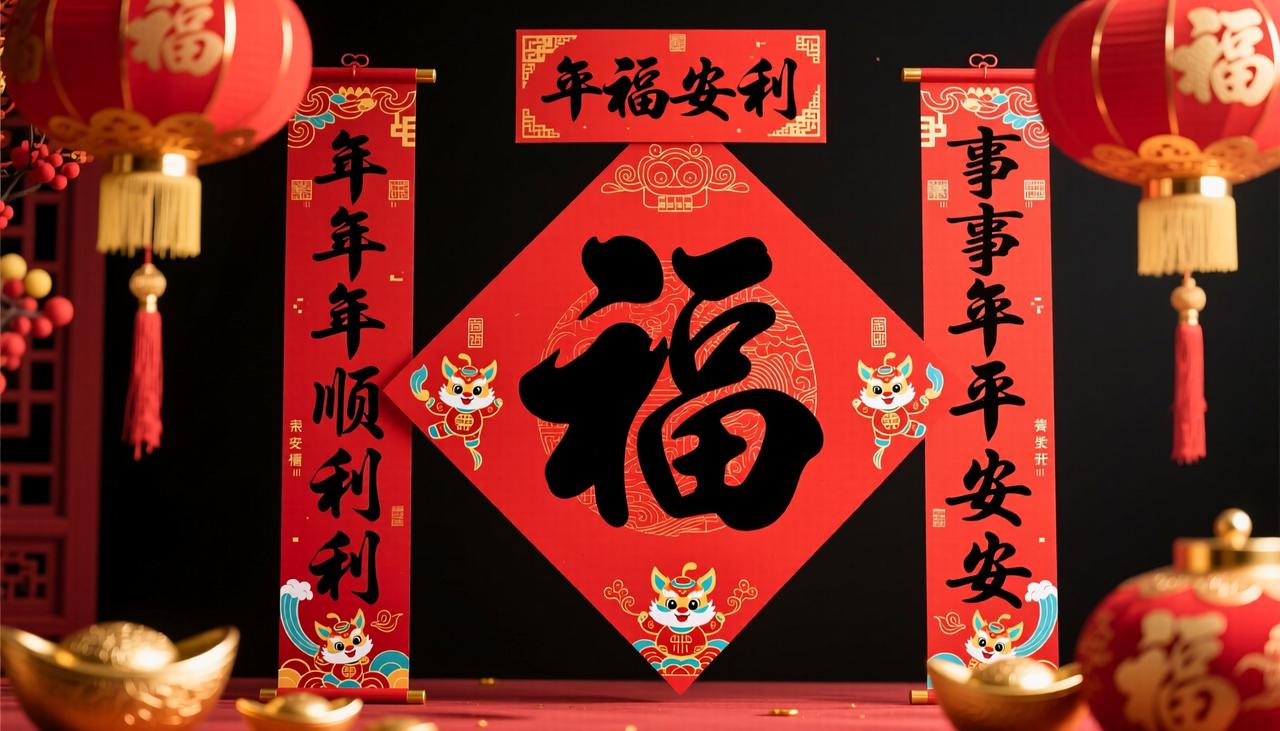 年福安利
年年年顺利利
福
事事年平安安
福
福
福